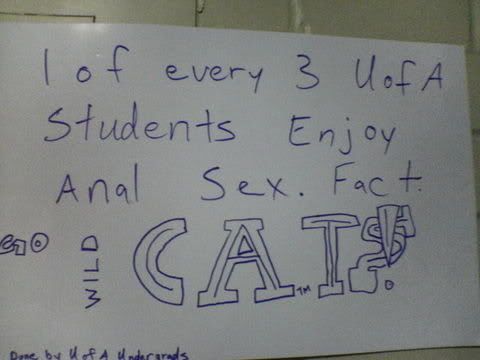 1 of every 3 U of A
Students Enjoy
Anal Sex. Fact.
Go WILD CATS!
TM
Done by U of A Undergrads